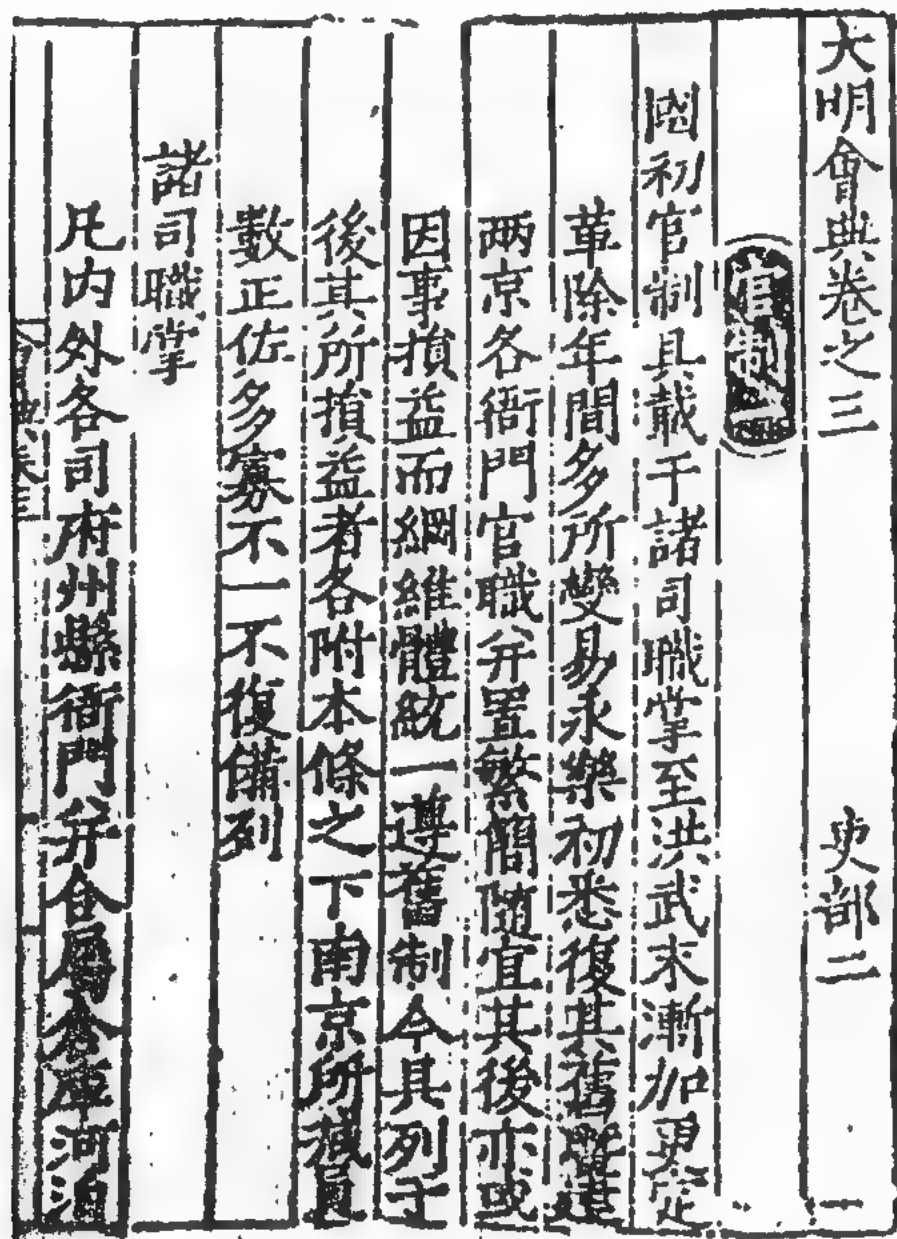 大明會典卷之三 吏部二 一
官制二
國初官制具載于諸司職掌至洪武末漸加更定
革除年間多所變易永樂初悉復其舊暨建
两京各衙門官職并置繁簡随宜其後亦或
因事損益而綱維體統一遵舊制今具列于
後其所損益者各附本條之下南京所減員
數正佐多寡不一不復備列
諸司職掌
凡内外各司府州縣衙門并合屬倉庫河泊